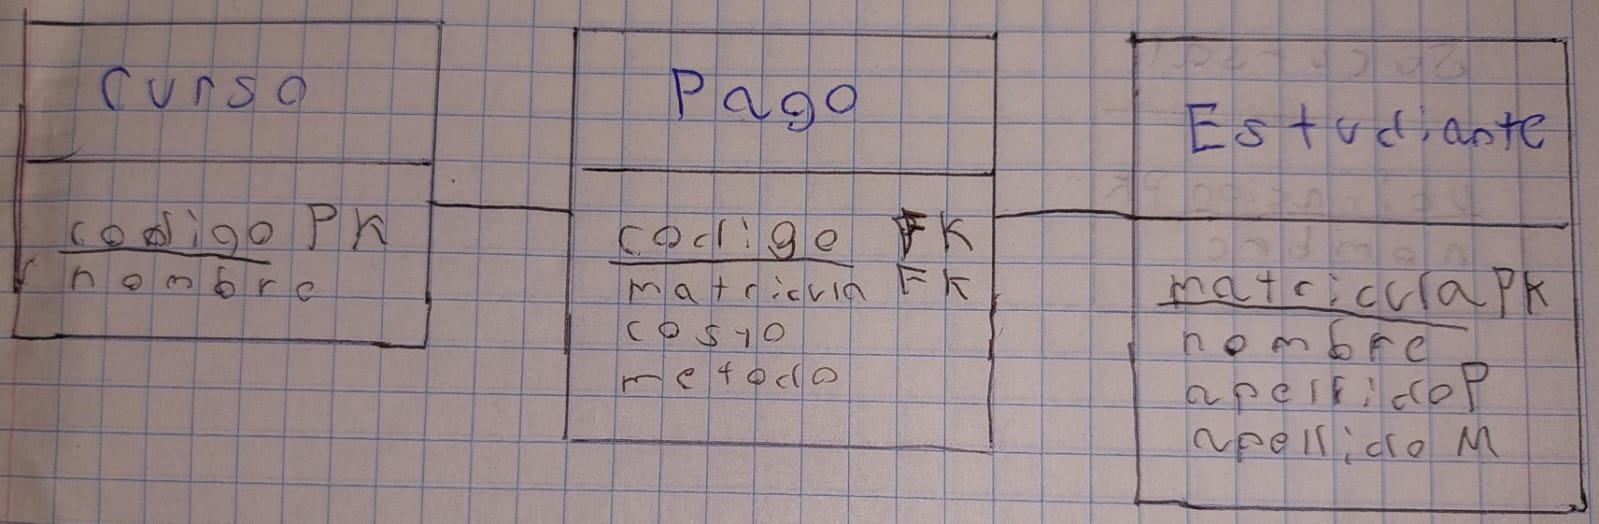 Curso
codigo PK
nombre
Pago
codigo FK
matricula FK
costo
metodo
Estudiante
matricula PK
nombre
apellido P
apellido M